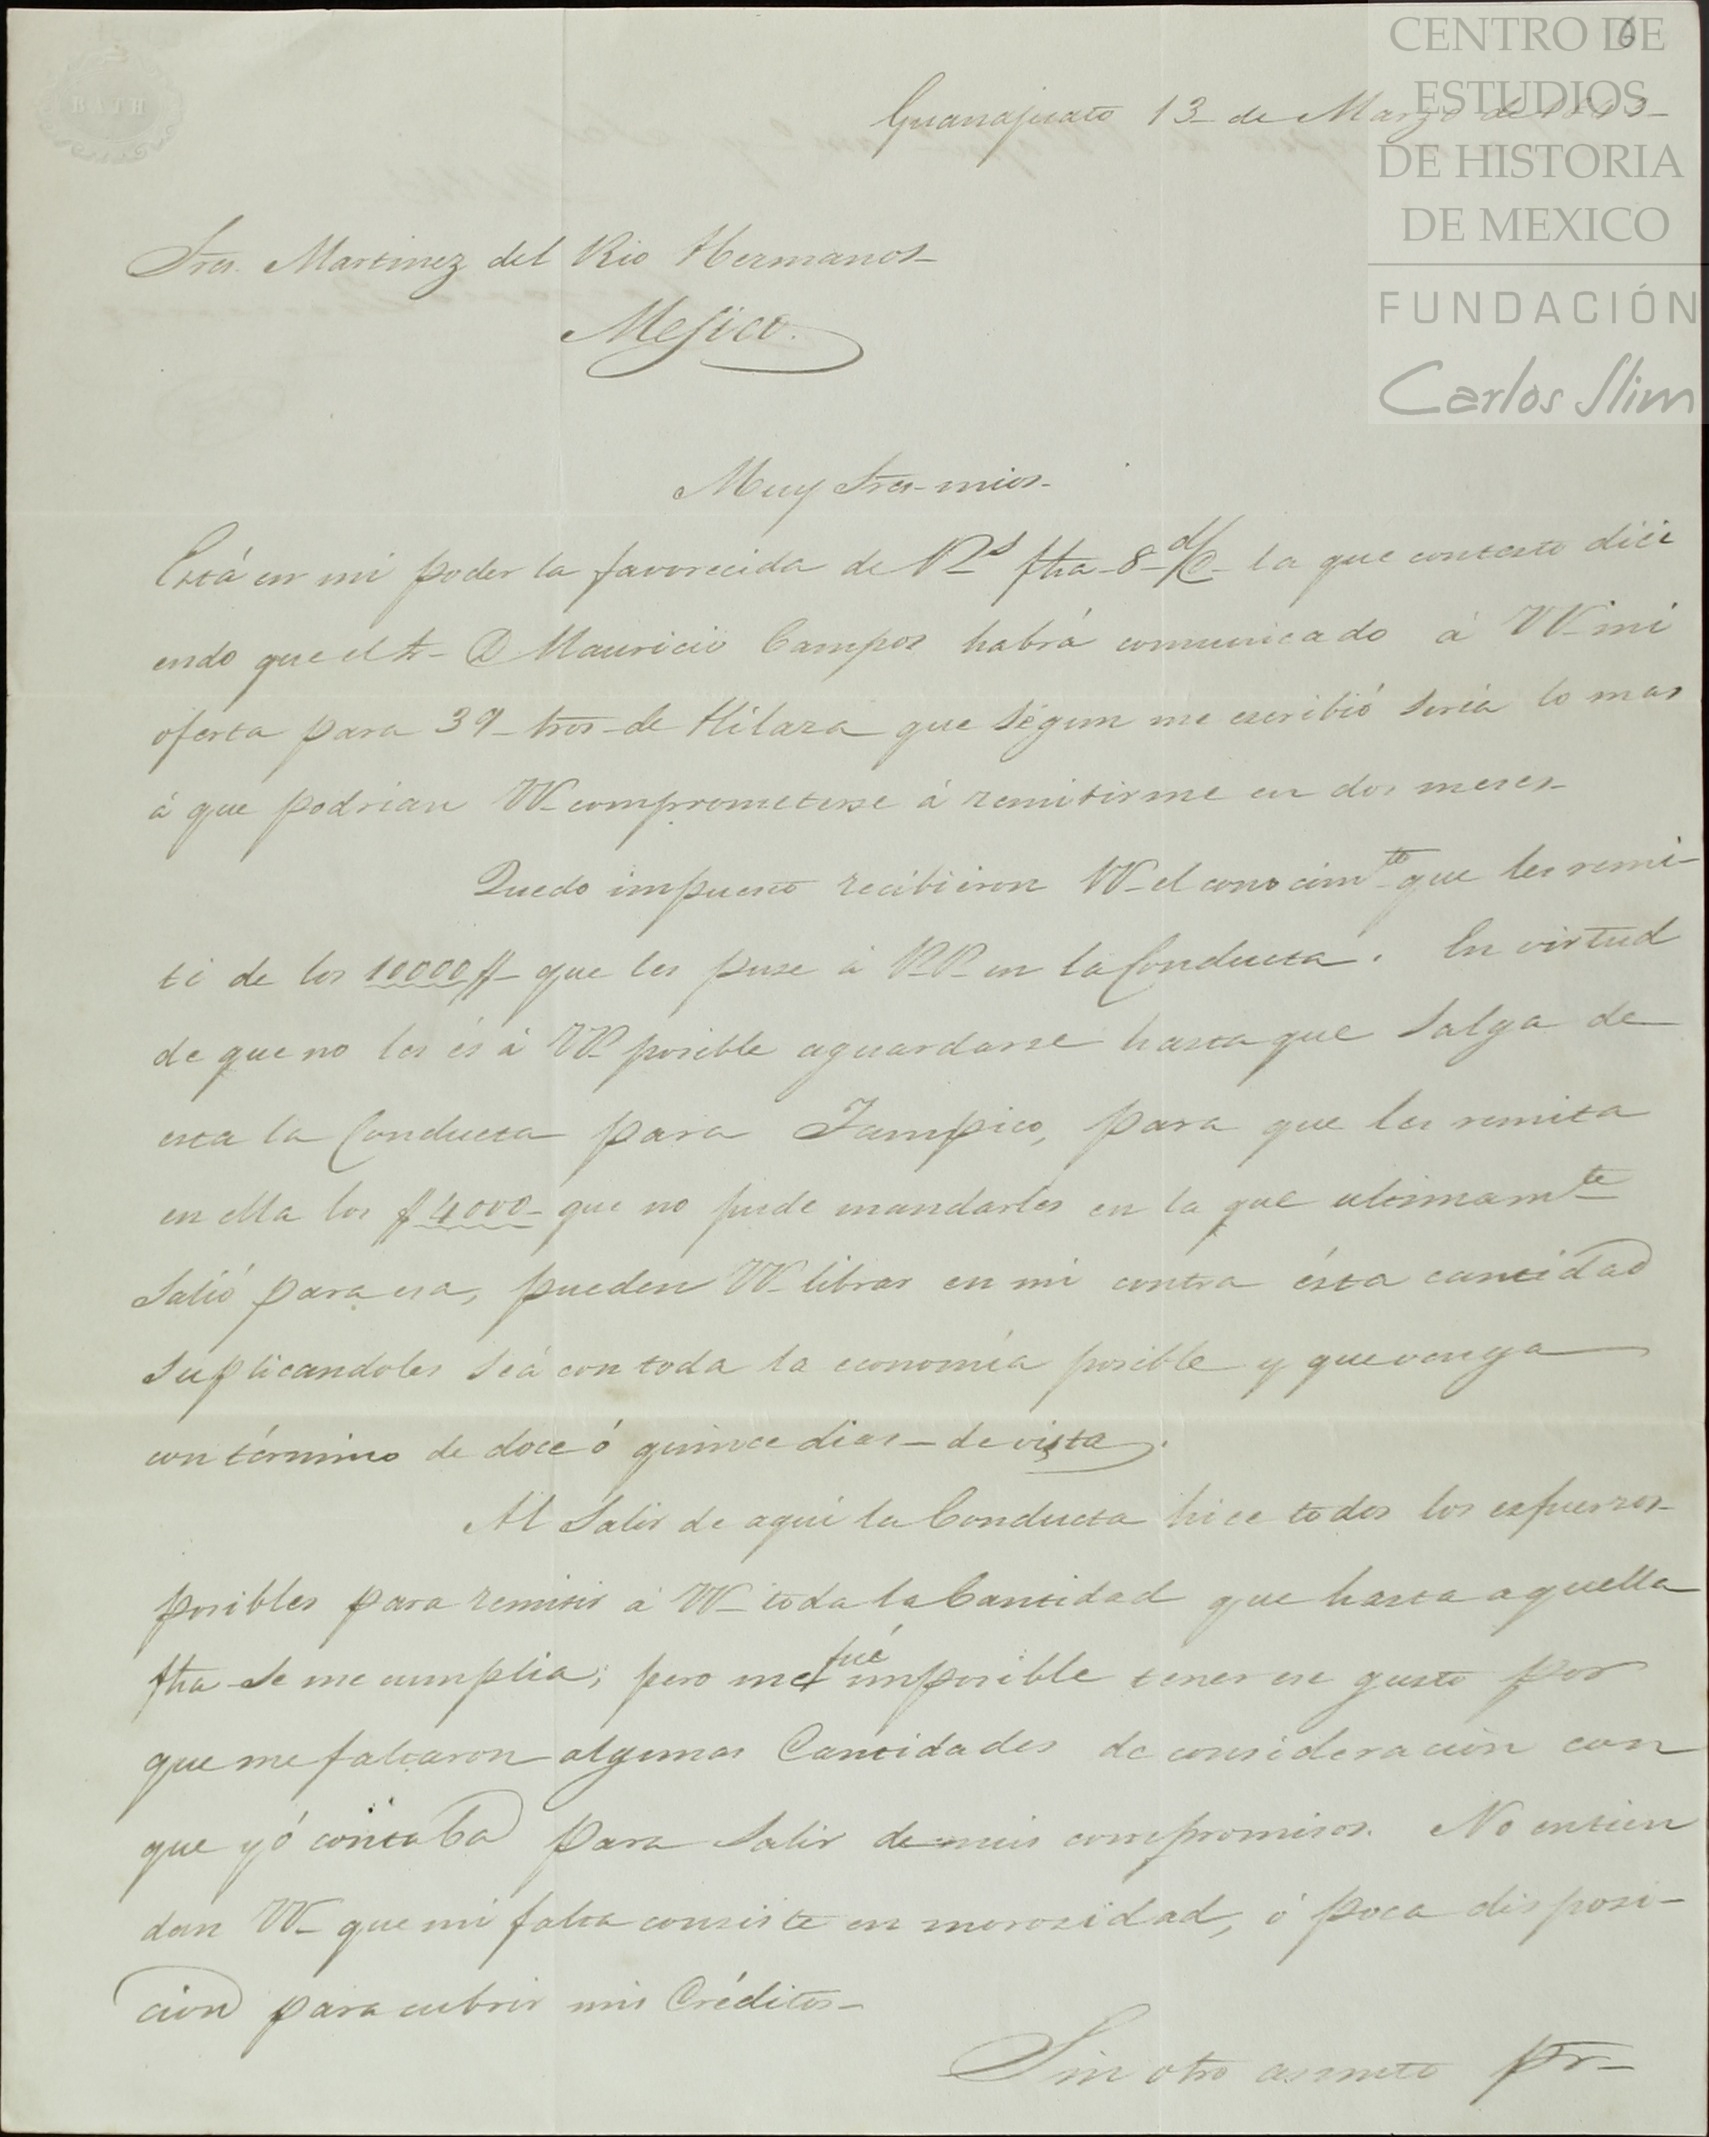 BATH
6
CENTRO DE
ESTUDIOS
DE HISTORIA
DE MEXICO
FUNDACIÓN
Carlos Slim
Guanajuato 13 de Marzo de
Sres. Martinez del Rio Hermanos
Mejico.
Muy Sres. mios.
Está en mi poder la favorecida de Vs fha 8 la que contesto dici
endo que el Sr. D Mauricio Campos habrá comunicado á VV. mi
oferta para 39 tros. de Hilaza que ségun me escribió seria lo mas
á que podrian VV. comprometerse á remitirme en dos meses.
Quedo impuesto recibieron VV. el conocimto que les remi-
ti de los 10000 $ que les puse á VV. en la Conducta. En virtud
de que no les és á VV. posible aguardarse hasta que salga de
esta la Conducta para Tampico, para que les remita
en ella los $ 4000 que no pude mandarles en la que ultimamte
salió para esa, pueden VV. librar en mi contra ésta cantidad
suplicandoles seá con toda la economía posible y que venga
con término de doce ó quince dias de vista.
Al salir de aqui la Conducta hice todos los esfuerzos
posibles para remitir á VV. toda la Cantidad que hasta aquella
fha se me cumplia; pero me fué imposible tener ese gusto por
que me faltaron algunas Cantidades de consideracion con
que yó contaba para salir de mis compromisos. No entien
dan VV. que mi falta consiste en morosidad, ó poca disposi-
cion para cubrir mis Créditos.
Sin otro asunto pr.